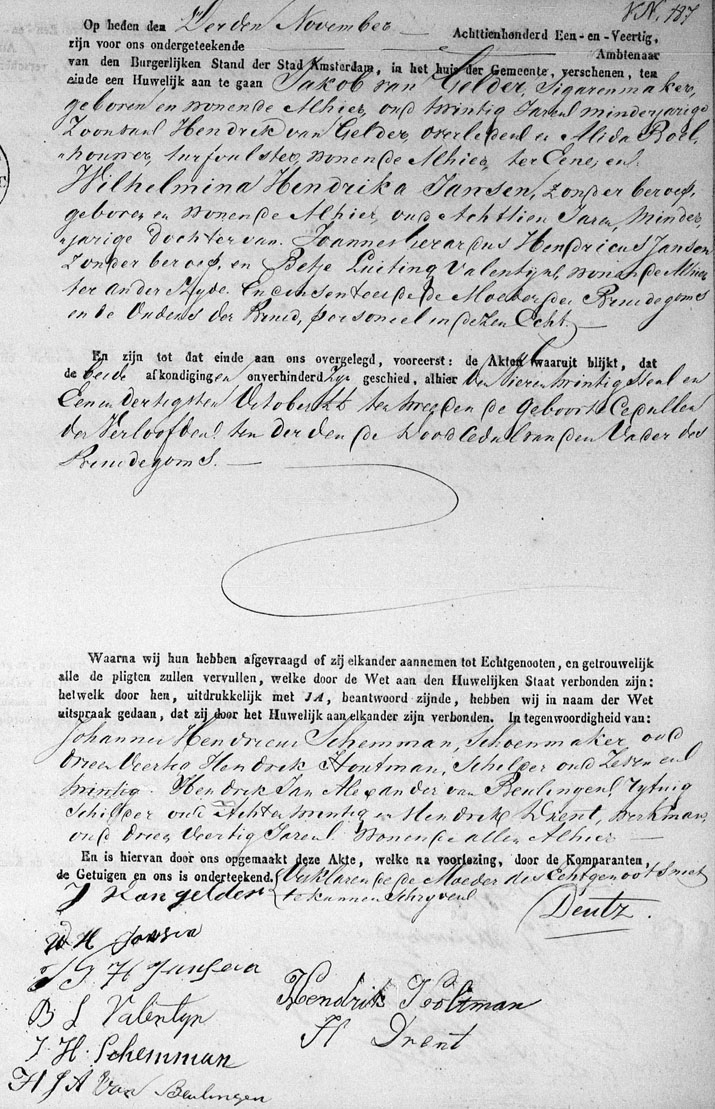 Op heden den Derden November Achttienhonderd Een-en-Veertig,
zijn voor ons ondergeteekende Ambtenaar
van den Burgerlijken Stand der Stad Amsterdam, in het huis der Gemeente, verschenen, ten
einde een Huwelijk aan te gaan Jakob van Gelder, Sigarenmaker,
geboren en wonende Alhier, oud twintig Jaren minderjarige
Zoon van Hendrik van Gelder, overleden en Alida
wonende Alhier, ter Eene, en
Wilhelmina Hendrika Jansen, zonder beroep,
geboren en wonende Alhier, oud Achttien Jaren, minder
jarige Dochter van Joannes Gerardus Hendricus Jansen
zonder beroep, en Betje Luiting Valentijn, wonende Alhier
ter andere Zyde. En consenteerde de Moeder des Bruidegoms
en de Ouders der Bruid, personeel in dezen Echt.
En zijn tot dat einde aan ons overgelegd, vooreerst: de Akten waaruit blijkt, dat
de beide afkondigingen onverhinderd zyn geschied, alhier den vierentwintigsten en
Eenendertigsten October ll ten tweeden de Geboorte Cedullen
der Verloofden ten derden de Doodcedul van den Vader des
Bruidegoms.
Waarna wij hun hebben afgevraagd of zij elkander aannemen tot Echtgenooten, en getrouwelijk
alle de pligten zullen vervullen, welke door de Wet aan den Huwelijken Staat verbonden zijn:
hetwelk door hen, uitdrukkelijk met JA, beantwoord zijnde, hebben wij in naam der Wet
uitspraak gedaan, dat zij door het Huwelijk aan elkander zijn verbonden. In tegenwoordigheid van:
Johannes Hendricus Schemman, Schoenmaker, oud
drieen Veertig Hendrik Schilder oud Zeven en
twintig. Hendrik Jan Alexander van Beulingen, Rytuig
Schilder oud Achtentwintig en Hendrik Drent, werkman,
oud drieen Veertig Jaren, wonende allen Alhier
En is hiervan door ons opgemaakt deze Akte, welke na voorlezing, door de Komparanten,
de Getuigen en ons is onderteekend. Verklarende de Moeder des Echtgenoots niet
te kunnen Schryven
J van gelder
Deutz.
W H Jansen
J G H Jansen
B L Valentyn
Hendrik
J. H. Schemman
H Drent
H J A Van Beulingen